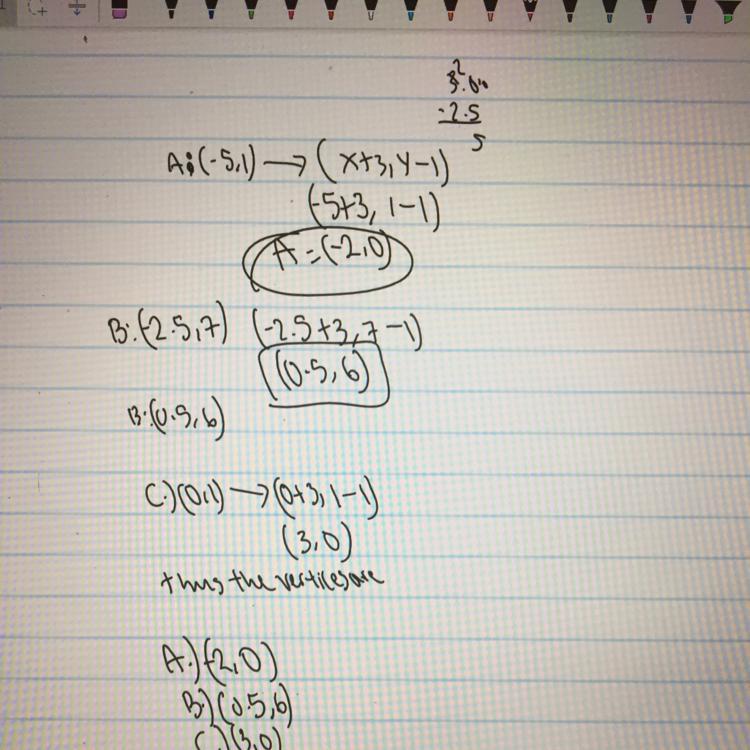 3.00
2
-2.5
5
A: (-5,1) → (x+3, y-1)
(-5+3, 1-1)
A = (-2,0)
B: (-2.5,7) (-2.5+3, 7-1)
(0.5, 6)
B: (0.5, 6)
C.) (0,1) → (0+3, 1-1)
(3,0)
thus the vertices are
A.) (-2,0)
B.) (0.5,6)
C.) (3,0)